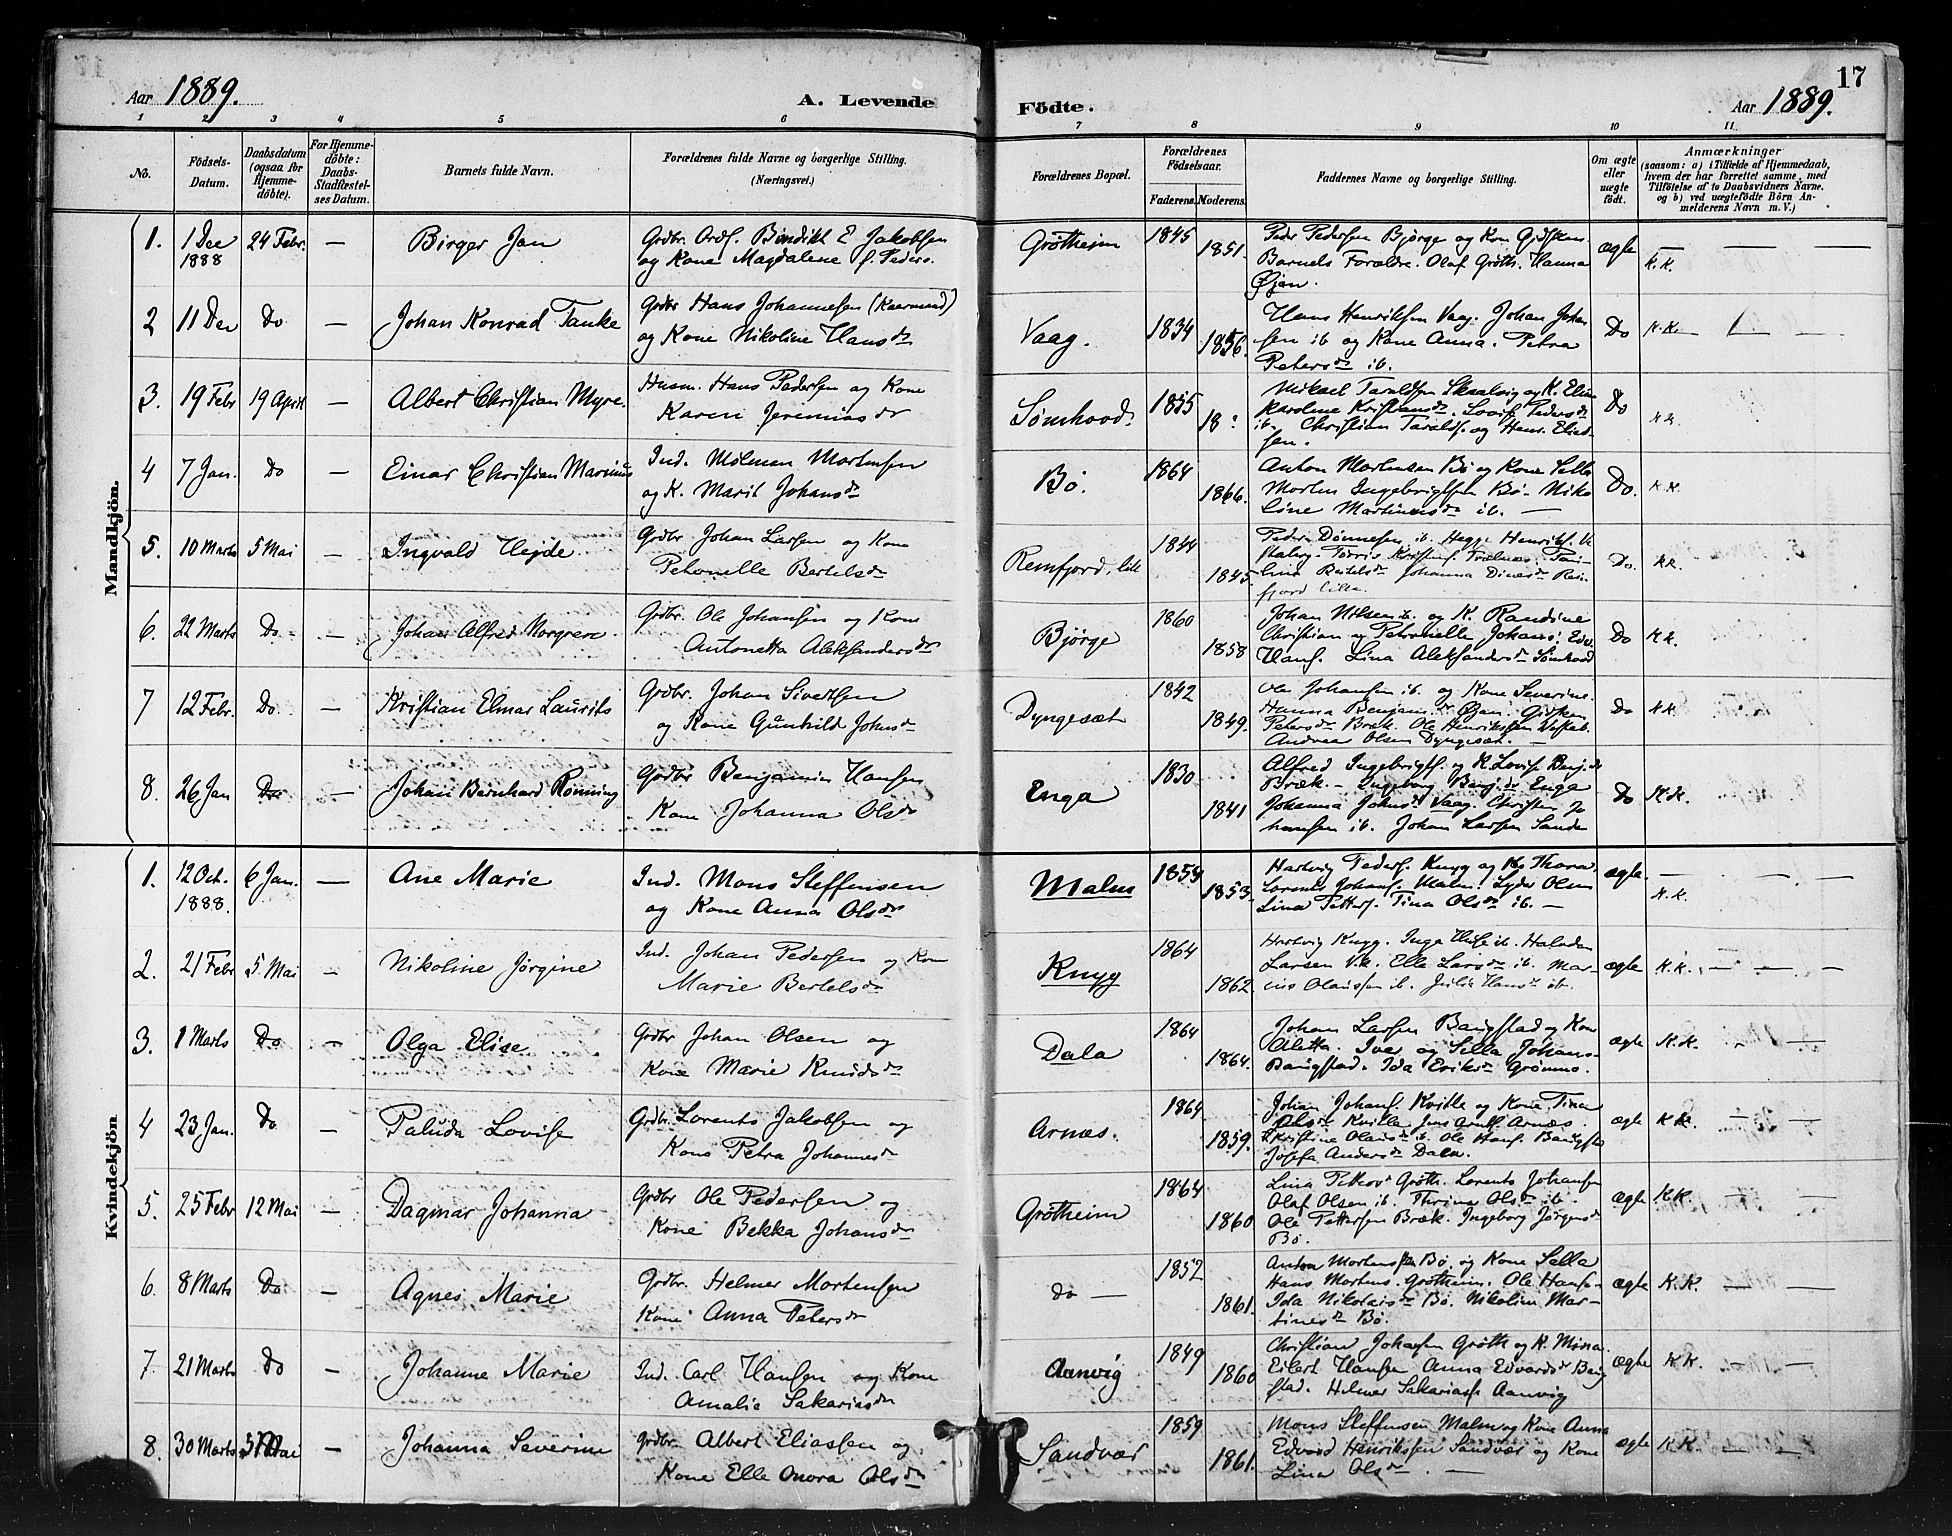 Aar 1889. A. Levende
Födte. Aar 1889. 17
1 2 3 4 5 6
7 8 9 10 11
No. Födsels-Datum. Daabsdatum (ogsaa for Hjemme-döbte). For Hjemme-döbte: Daabs-Stadfæstel-ses Datum. Barnets fulde Navn. Forældrenes fulde Navne og borgerlige Stilling. (Næringsvei.)
Forældrenes Bopæl. Forældrenes Födselsaar. Faderens. Moderens. Faddernes Navne og borgerlige Stilling. Om ægte eller uægte födt. Anmærkninger (saasom: a) i Tilfælde af Hjemmedaab, hvem der har forrettet samme, med Tilföielse af to Daabsvidners Navne. og b) ved uægtefödte Börn An-melderens Navn m. V.)
Mandkjön.
1. 1 Dec 1888 24 Febr. — Birger Jan Grdbr. Ordf. Bendikt E Jakobsen
og Kone Magdalene f. Peders.
Grøtheim 1845 1851. Peder Pedersen Bjørge og Kone Gidsken.
Barnets Forældre. Olaf Grøth. Hanna
Øjen. ægte K.K. — — —
2 11 Dec Do — Johan Konrad Tanke Grdbr Hans Johannesen (Kaarmand)
og Kone Nikoline Hansdr
Vaag. 1834 1856. Hans Henriksen Vaag. Johan Johan
sen ib og Kone Anna. Petra
Petersdr ib. Do K.K. — — —
3. 19 Febr 19 April — Albert Christian Myre. Husm. Hans Pedersen og Kone
Karen Jeremiasdr
Sømhovd 1855 18 Mikael Taraldsen Skaalvig og K. Elen
Karoline Kristiansdr. Lovise Pedersdr
ib. Christian Taraldsf. og Hans Elias-
sen. Do K.K.
4 7 Jan. Do — Einar Christian Marinus Ind. Mølman Mortensen
og K. Marit Johansdr
Bø. 1864 1866. Anton Mortensen Bø og Kone Sella
Morten Ingebrigtsen Bø. Niko
line Martinusdr ib. — Do. K.K.
5. 10 Marts 5 Mai — Ingvald Hejde Grdbr Johan Larsen og Kone
Petonelle Bertelsdr
Remfjord, lill 1844 1845 Peder Dønnesen ib. Hegge Henriksf.
Bertelsdr Johanna Dinesdr
fjord lille. Do. K.K.
6. 22 Marts Do — Johan Alfred Norgren. Grdbr. Ole Johansen og Kone
Antonetta Aleksandersdr
Bjørge 1860 1858 Johan Nilsen ib. og K. Randine
Christian og Petronelle Johans.
Hansf. Lina Aleksandersdr Sømhovd Do K.K.
7 12 Febr. Do — Kristian Elmar Laurits Grdbr. Johan Sivertsen
og Kone Gunhild Johnsdr
Dyngesæt 1842 1849. Ole Johansen ib. og Kone Severine.
Hanna Benjam.dr Øjen. Gidsken
Petersdr Bræk. Ole Henriksen
Andreas Olsen Dyngesæt. — Do K.K.
8. 26 Jan Do — Johan Bernhard Rønning Grdbr Benjamin Hansen
Kone Johanna Olsdr
Enga 1830 1841 Alfred Ingebrigtsf. og K. Lovise Benj.dr
Bræk. — Ingeborg Benj.dr Enga
Johanna Johnsdr Vaag. Christen Jo
hansen ib. Johan Larsen Sande Do K.K.
Kvindekjön
1. 12 Oct. 1888. 6 Jan. — Ane Marie Ind. Mons Steffensen
og Kone Anna Olsdr
Malm 1854 1853. Hartvig Pedersf. Knyg og Thora.
Lorents Johansf. Malm. Lyder Olsen
Lina Pettersf. Tina Olsdr ib. — ægte K.K. — — — —
2. 21 Febr 5 Mai — Nikoline Jørgine Ind. Johan Pedersen og Kone
Marie Bertelsdr
Knyg 1864 1862. Hartvig Knyg. Inga ib. Halvdan
Larsen ib. Elle Larsdr ib. Mar-
ius Olaussen ib. Julie Hansdr ib. ægte K.K. — — —
3. 1 Marts Do — Olga Elise Grdbr Johan Olsen og
Kone Marie Knudsdr
Dala 1864 1864. Johan Larsen Bangstad og Kone
Aletta. Iver og Sella Johans-
Bangstad. Ida Eriksdr Grømmo. ægte K.K.
4 23 Jan. Do — Paluda Lovise Grdbr. Lorents Jakobsen og
Kone Petra Johannesdr
Arnæs. 1864 1859. Johan Johansf. Kville og Kone Tina
Olsdr Kville Jens Arntf. Arnæs.
Kristine Olausdr ib. Ole Hansf. Bangsta
Josefa Andersdr Dala. ægte K.K.
5. 25 Febr 12 Mai — Dagmar Johanna Grdbr Ole Pedersen og
Kone Bekka Johansdr
Grøtheim 1864 1860 Lina Petters Grøth. Lorents Johansen
Olaf Olsen ib. Thrina Olsdr ib.
Ole Pettersen Bræk. Ingeborg Jørgensdr
Bø. ægte K.K.
6. 8 Marts Do — Agnes Marie Grdbr. Helmer Mortensen
Kone Anna Petersdr
Do — 1852 1861. Anton Mortensen Bø. og Kone Sella
Hans Mortens. Grøtheim. Ole Hans-
Ida Nikolaisdr Bø. Nikoline Mar-
tinesdr Bø. ægte K.K.
7. 21 Marts Do — Johanne Marie Ind. Carl Hansen og Kone
Amalia Sakariasdr
Aanvig 1849 1860 Christian Johansen Grøth og K. Mina
Eilert Hansen Anna Edvardsdr Bang
stad. Helmer Sakariasf. Aanvig ægte K.K.
8. 30 Marts Mai — Johanna Severine Grdbr. Albert Eliassen og
Kone Elle Onora Olsdr
Sandvær 1859 1861. Mons Steffensen Malm og Kone Anna
Edvard Henriksen Sandvær og Kone
Lina Olsdr. — ægte K.K. — —